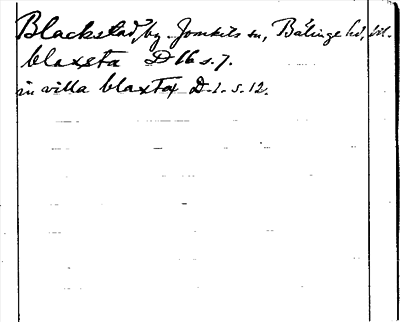 Blackstad, by. Jomkils sn, Bälinge hd, Upl.
blaxsta D 16 s. 7.
in villa blaxstax D. 2. s. 12.